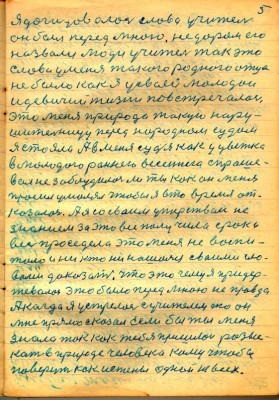 5
Я догидовалася слова учителя
он был передмною, не даром его
назвали люди учителя так это
слова у меня такого родного отца
не было как я у своей молодой
и девичий жизни повстречалась,
это меня природа такую нару-
шительницу перед народном судом
я стояла А в меня судья как у цветка
в молодого раннего весеннего спраше-
вал не заблудилась ли ты как он меня
просил умолял чтобы я в то время от-
казалась. А я со своим упорством не
знанием за это все получила срок и
все проседела это меня не воспи-
тало и ни кто ни нашолся своими сло-
вами доказать, что это чему я придер-
жевалась это было передмною не правда
А когда я устрелась с учителем то он
мне прямо сказал если бы ты меня
знала то как тебя пришлось разыс-
кать в природе человека кому чтобы
поверить как истены одной на всех.